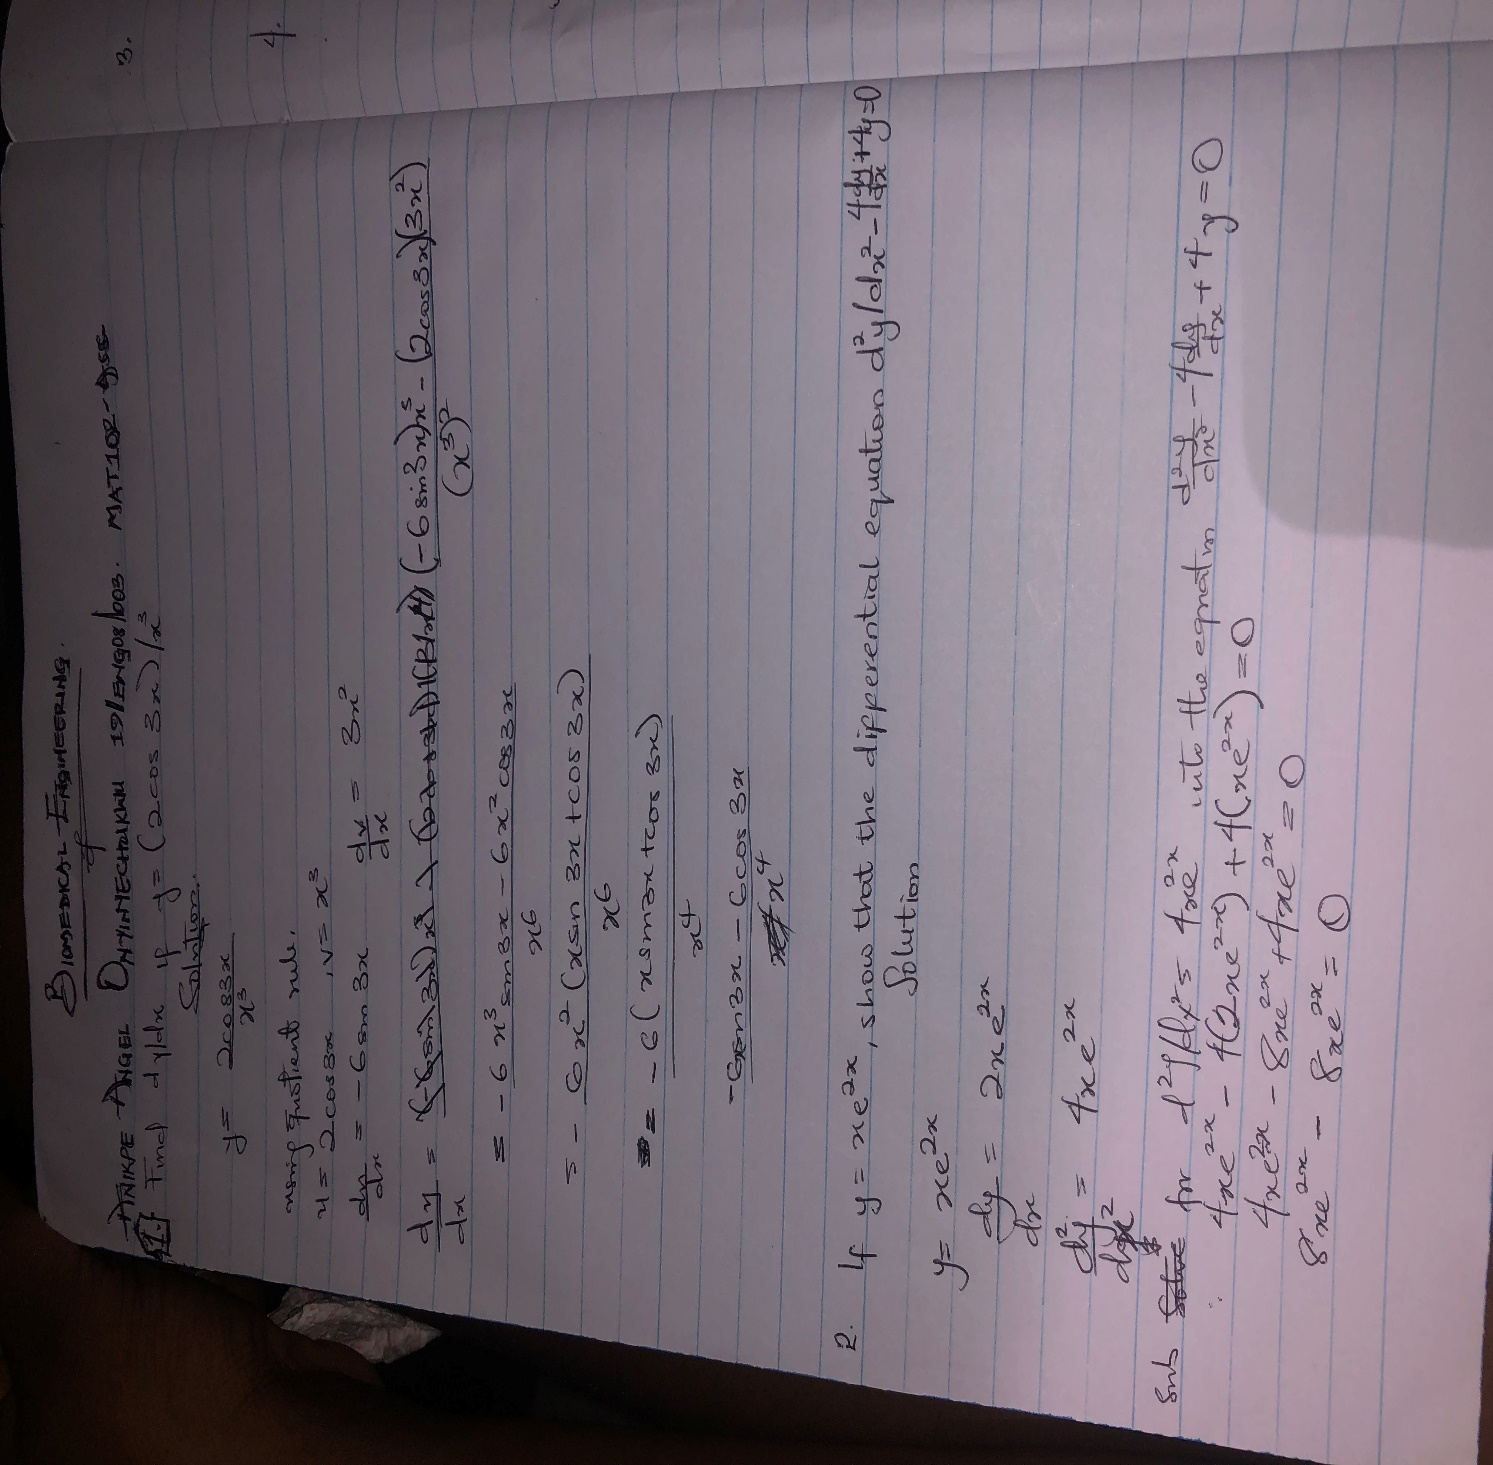 BIOMEDICAL ENGINEERING.
ANIKPE ANGEL ONYINYECHUKWU 19/ENG08/003. MAT102
1. Find dy/dx if y = (2cos 3x)/x³
Solution.
y = 2cos3x / x³
using quotient rule,
u = 2cos3x, v = x³
du/dx = -6sin3x dv/dx = 3x²
dy/dx = (-6sin3x)x³ - (2cos3x)(3x²) / (x³)²
= -6x³sin3x - 6x²cos3x / x⁶
= - 6x²(xsin3x + cos3x) / x⁶
= -6(xsin3x + cos3x) / x⁴
-6xsin3x - 6cos3x / x⁴
2. If y = xe²ˣ, show that the differential equation d²y/dx² - 4dy/dx + 4y = 0
Solution
y = xe²ˣ
dy/dx = 2xe²ˣ
d²y/dx² = 4xe²ˣ
Sub for d²y/dx² = 4xe²ˣ into the equation d²y/dx² - 4dy/dx + 4y = 0
4xe²ˣ - 4(2xe²ˣ) + 4(xe²ˣ) = 0
4xe²ˣ - 8xe²ˣ + 4xe²ˣ = 0
8xe²ˣ - 8xe²ˣ = 0
3.
4.